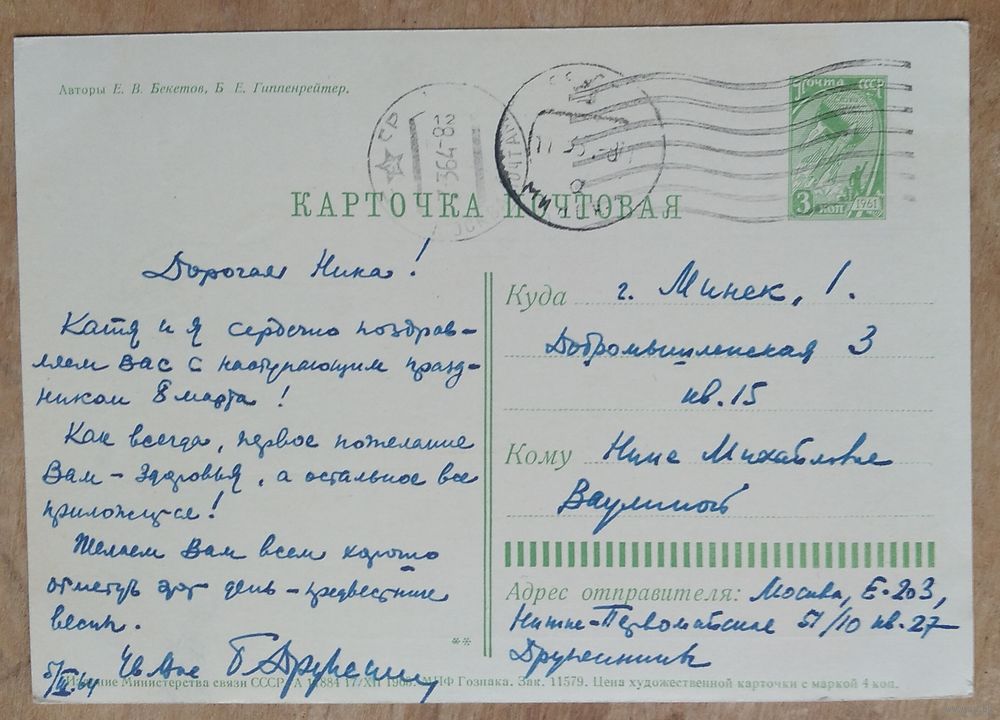 Авторы Е. В. Бекетов, Б. Е. Гиппенрейтер.
ПОЧТА СССР
3 КОП
1961
КАРТОЧКА ПОЧТОВАЯ
Дорогая Нина!
Катя и я сердечно поздрав-
ляем Вас с наступающим празд-
ником 8 марта!
Как всегда, первое пожелание
Вам – здоровья, а остальное все
приложится!
Желаем Вам всем хорошо
отметить этот день – предвестник
весны.
Б. Дружинин
5/III-64
**
Куда г. Минск, 1.
Добромысленская 3
кв. 15
Кому Нине Михайловне
Ваулиной
Адрес отправителя: Москва, Е-203,
Нижне-Первомайская 51/10 кв. 27
Дружинины
Издание Министерства связи СССР. А 11884 17/XII 1963. МПФ Гознака. Зак. 11579. Цена художественной карточки с маркой 4 коп.